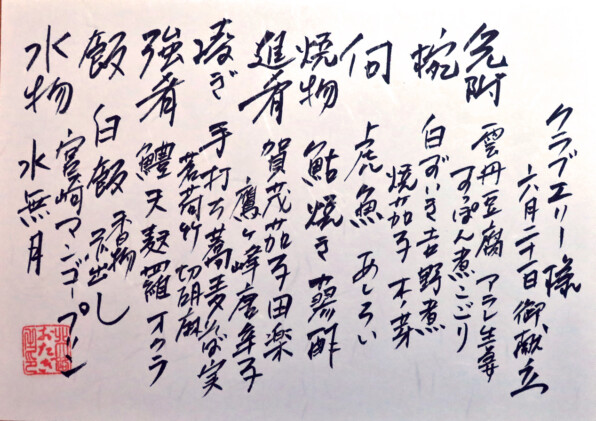 クラブエリー様
六月二十一日 御献立
先附 雲丹豆腐 アラレ生姜
すぽん煮こごり
椀 白ずいき吉野煮
焼茄子 木ノ芽
向 虎魚 あしらい
焼物 鮎焼き 蓼酢
進肴 賀茂茄子田楽
鷹ヶ峰唐辛子
凌ぎ 手打ち蕎麦 そば実
茗荷竹 切胡麻
強肴 鱧天麩羅 オクラ
飯 白飯 香物 赤出し
水物 宮崎マンゴープリン
水無月
おたぎ